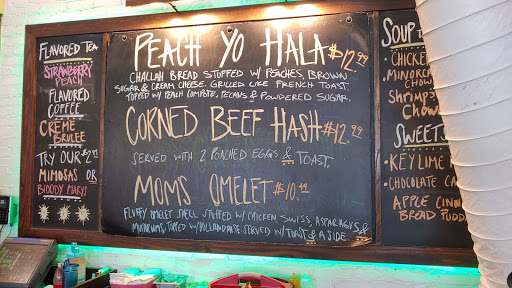 FLAVORED TEA
STRAWBERRY
PEACH
FLAVORED
COFFEE
CREME
BRULEE
TRY OUR $7.99
MIMOSAS OR
BLOODY MARYS
PEACH YO HALA $12.99
CHALLAH BREAD STUFFED W/ PEACHES, BROWN
SUGAR & CREAM CHEESE. GRILLED LIKE FRENCH TOAST.
TOPPED W/ PEACH COMPOTE, PECANS & POWDERED SUGAR.
CORNED BEEF HASH $12.99
SERVED WITH 2 POACHED EGGS & TOAST.
MOMS OMELET $10.99
FLUFFY OMELET SHELL STUFFED W/ CHICKEN, SWISS, ASPARAGUS &
MUSHROOMS, TOPPED W/ HOLLANDAISE. SERVED W/ TOAST & A SIDE.
SOUP
CHICKEN
MINORCA
CHOW
SHRIMP
CHOW
SWEETS
• KEY LIME
• CHOCOLATE CA
APPLE CINN
BREAD PUDD